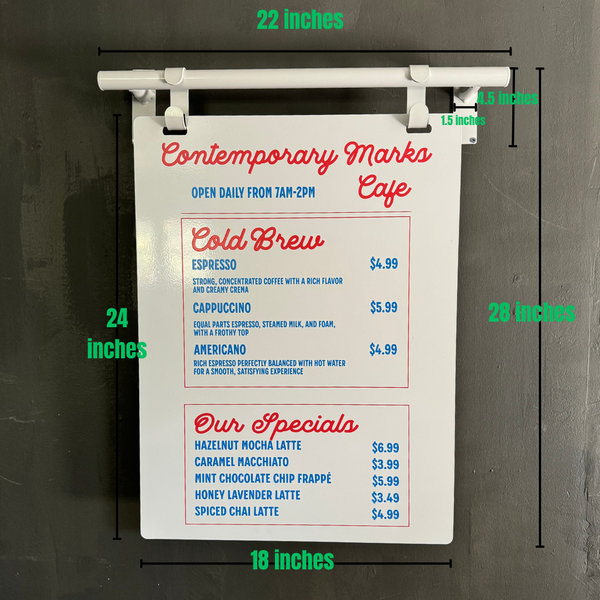 22 inches
4.5 inches
1.5 inches
Contemporary Marks
OPEN DAILY FROM 7AM-2PM Cafe
Cold Brew
ESPRESSO $4.99
STRONG, CONCENTRATED COFFEE WITH A RICH FLAVOR
AND CREAMY CREMA
CAPPUCCINO $5.99
EQUAL PARTS ESPRESSO, STEAMED MILK, AND FOAM,
WITH A FROTHY TOP
28 inches
24
inches
AMERICANO $4.99
RICH ESPRESSO PERFECTLY BALANCED WITH HOT WATER
FOR A SMOOTH, SATISFYING EXPERIENCE
Our Specials
HAZELNUT MOCHA LATTE $6.99
CARAMEL MACCHIATO $3.99
MINT CHOCOLATE CHIP FRAPPÉ $5.99
HONEY LAVENDER LATTE $3.49
SPICED CHAI LATTE $4.99
18 inches